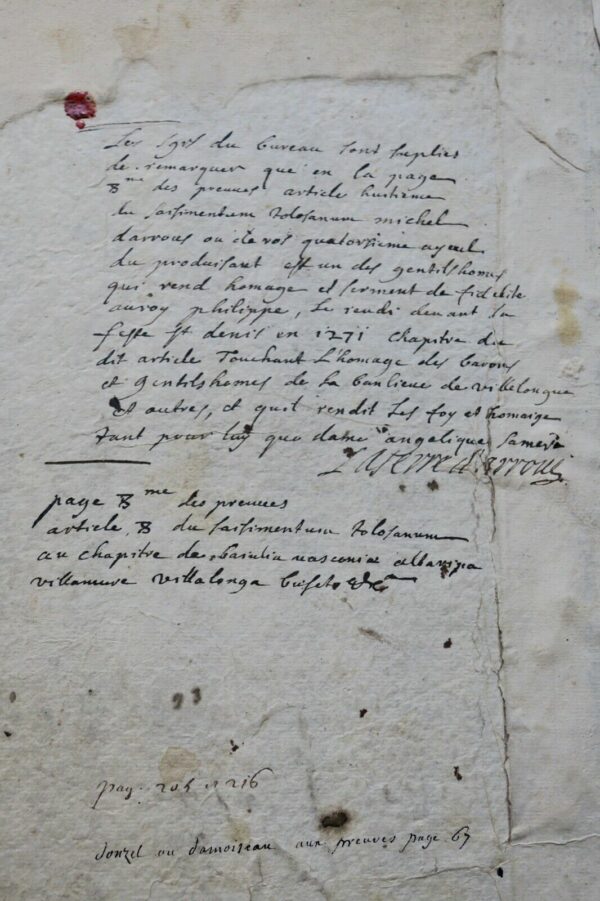 Les sgrs du bureau sont suplies
de remarquer que en la page
8me des preuves article huitieme
du saisimentum tolosanum michel
darrous ou de ros quatorsieme ayeul
du produisant est un des gentilshomes
qui rend homage et serment de fidelite
au roy philippe, le jeudi devant la
feste st denis en 1271 chapitre du
dit article Touchant L'homage des barons
et gentilshomes de la banlieue de villelongue
et autres, et quil rendit Les foy et homaige
tant pour luy que dame angelique sa mere
Laserre d'arrous
page 8me des preuves
article 8 du saisimentum tolosanum
au chapitre de vasconia
villamure villalonga buseto &c
pag. 205 et 216
donzel ou damoiseau aux preuves page 67